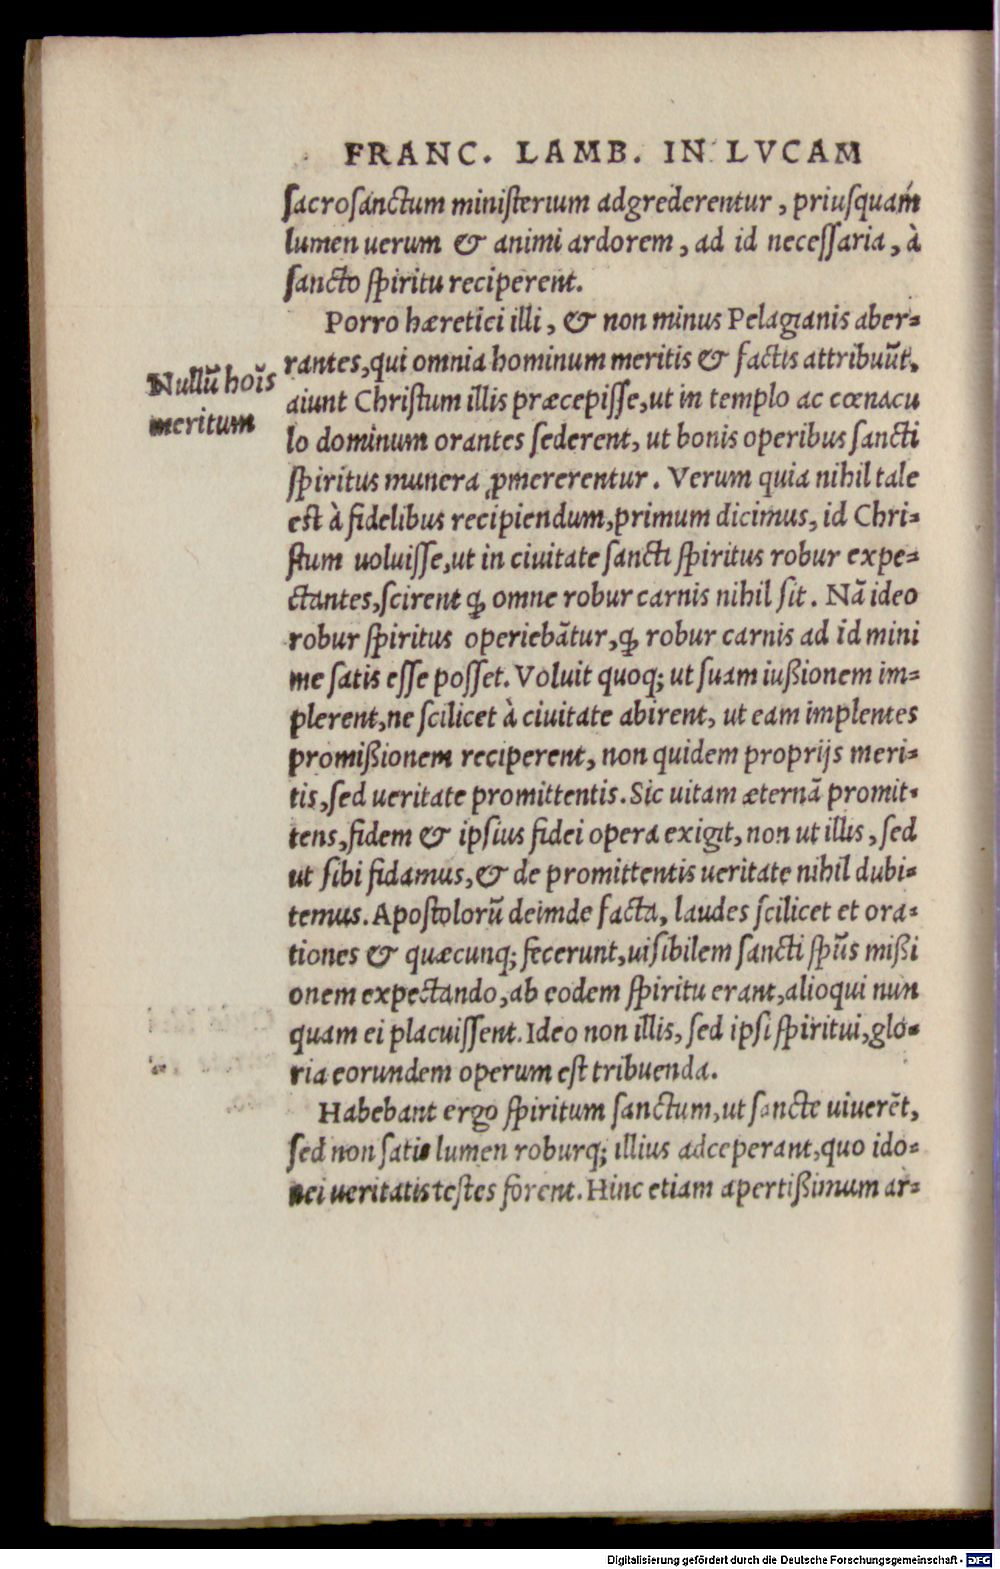 FRANC. LAMB. IN LVCAM
sacrosanctum ministerium adgrederentur, priusquam
lumen uerum & animi ardorem, ad id necessaria, à
sancto spiritu reciperent.
Porro hæretici illi, & non minus Pelagianis aber-
rantes, qui omnia hominum meritis & factis attribuūt,
Nullū hoīs
meritum
aiunt Christum illis præcepisse, ut in templo ac cœnacu
lo dominum orantes sederent, ut bonis operibus sancti
spiritus munera ꝓmererentur. Verum quia nihil tale
est à fidelibus recipiendum, primum dicimus, id Chri-
stum uoluisse, ut in ciuitate sancti spiritus robur expe-
ctantes, scirent ꝙ omne robur carnis nihil sit. Nā ideo
robur spiritus operiebātur, ꝙ robur carnis ad id mini
me satis esse posset. Voluit quoq; ut suam iußionem im-
plerent, ne scilicet à ciuitate abirent, ut eam implentes
promißionem reciperent, non quidem proprijs meri-
tis, sed ueritate promittentis. Sic uitam æternā promit-
tens, fidem & ipsius fidei opera exigit, non ut illis, sed
ut sibi fidamus, & de promittentis ueritate nihil dubi-
temus. Apostolorū deinde facta, laudes scilicet et ora-
tiones & quæcunq; fecerunt, uisibilem sancti spūs mißi
onem expectando, ab eodem spiritu erant, alioqui nun
quam ei placuissent. Ideo non illis, sed ipsi spiritui, glo-
ria eorundem operum est tribuenda.
Habebant ergo spiritum sanctum, ut sancte uiuerēt,
sed non satis lumen roburq; illius adceperant, quo ido-
nei ueritatis testes forent. Hinc etiam apertißimum ar-
Digitalisierung gefördert durch die Deutsche Forschungsgemeinschaft - DFG